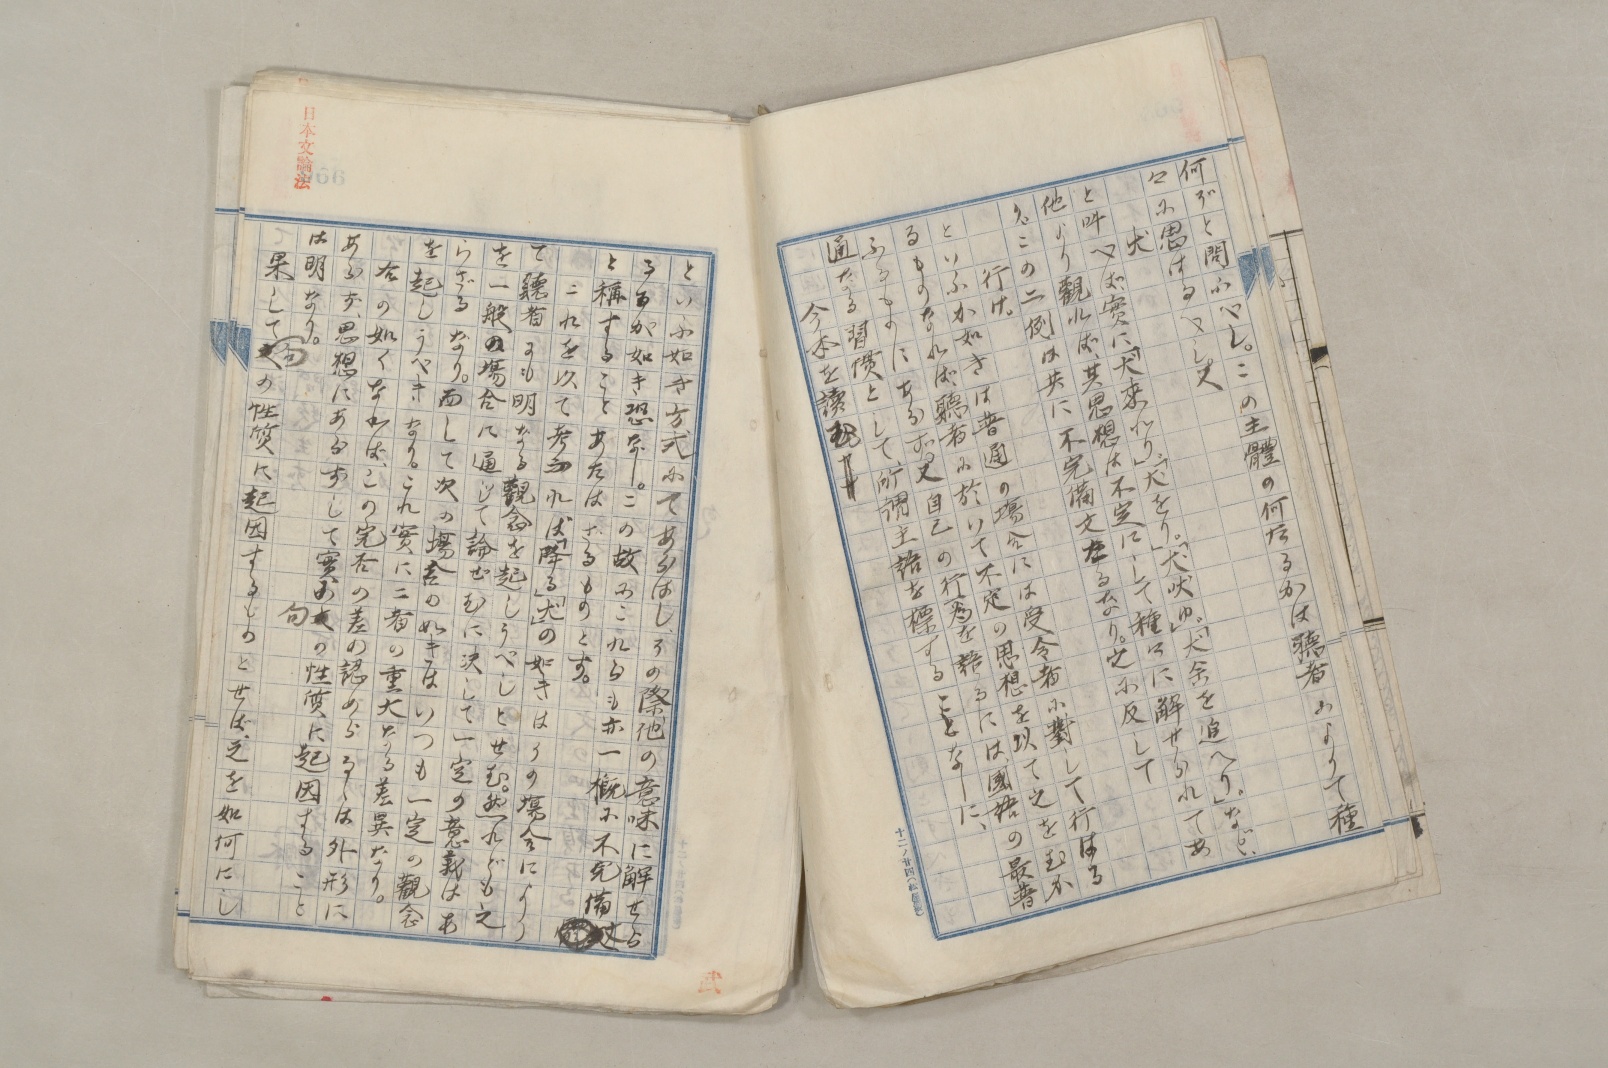 何ぞと問ふべし。この主體の何たるかは聽者によりて種
々に思はるべし又
犬
と叫べば實に「犬來れり」「犬をり。」「犬吠ゆ。」「犬余を追へり。」など、
他より觀れば、其思想は不定にして種々に解せられてあ
この二例は共に不完備文たるなり。之に反して
行け。
といふが如きは普通の塲合には受令者に對して行はる
るものなれば聽者に於いて不定の思想を以て之をむか
ふるものにあらず。又自己の行爲を語るには、國語の最普
通なる習慣として所謂主語を標することなしに、
今本を讀む
といふ如き方式にてあらはしその際他の意味に解せら
るるが如き恐なし。この故にこれらも亦一概に不完備
と稱することあたはざるものとす。
これを以て考ふれば「降る」「犬」の如きはその塲合により
て聽者にも明なる觀念を起しうべしとせむ。然れども之
を一般の塲合に通じて論ぜむに決して一定の意義はあ
らざるなり。而して次の塲合の如きはいつも一定の觀念
を起しうべきなり。これ實に二者の重大なる差異なり。
右の如くなれば、この完否の差の認めらるるは外形に
あらず、思想にあらずして實に句の性質に起因すること
は明なり。
果して句の性質に起因するものとせば、之を如何にし
日本文論法
十二ノ廿四(松屋製)